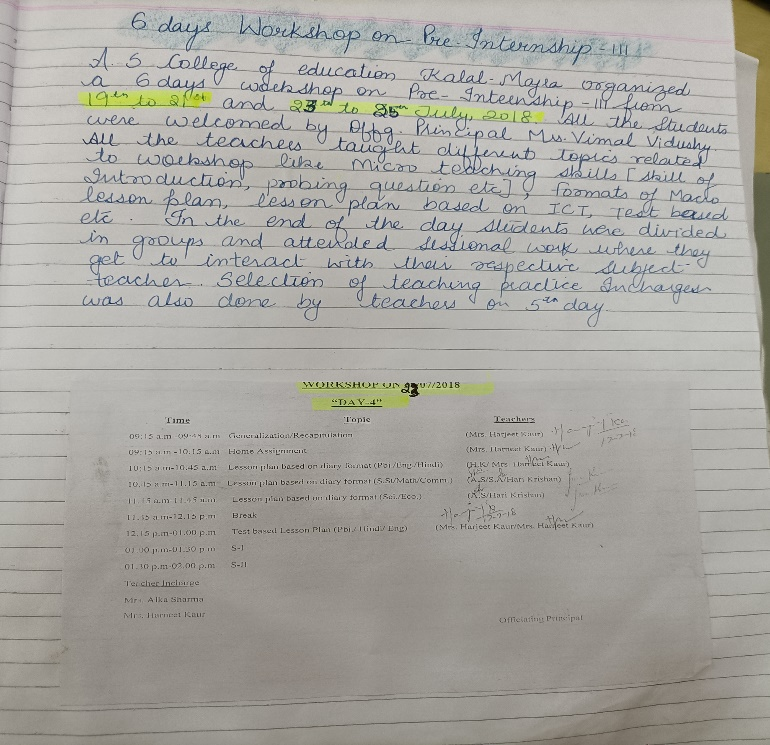 6 days Workshop on Pre-Internship-III
A.S College of education Kalal-Majra organized
a 6 days workshop on Pre-Internship-III from
19th to 21st and 23rd to 25th July, 2018. All the Students
were welcomed by Offg. Principal Ms. Vimal Vidushy.
All the teachers taught different topics related
to workshop like Micro teaching skills [skill of
Introduction, probing question etc], formats of Macro
lesson plan, lesson plan based on ICT, Test based
etc. In the end of the day students were divided
in groups and attended sessional work where they
get to interact with their respective subject-
teacher. Selection of teaching practice Incharges
was also done by teachers on 5th day.
WORKSHOP ON 23/07/2018
"DAY-4"
Time Topic Teachers
09:15 a.m-09:45 a.m Generalization/Recapitulation (Mrs. Harjeet Kaur)
09:45 a.m-10.15 a.m Home Assignment (Mrs. Harneet Kaur)
10:15 a.m-10.45 a.m Lesson plan based on diary format (Pbi./Eng./Hindi) (H.K/ Mrs. Harneet Kaur)
10.45 a.m-11.15 a.m Lesson plan based on diary format (S.St/Math/Comm.) (A.S/S.A/Hari Krishan)
11.15 a.m-11.45 a.m Lesson plan based on diary format (Sci./Eco.) (A.S/Hari Krishan)
11.45 a.m-12.15 p.m Break
12.15 p.m-01.00 p.m Test based Lesson Plan (Pbi./ Hind./ Eng) (Mrs. Harjeet Kaur/Mrs. Harneet Kaur)
01.00 p.m-01.30 p.m S-I
01.30 p.m-02.00 p.m S-II
Teacher Incharge
Mrs. Alka Sharma
Mrs. Harneet Kaur Officiating Principal